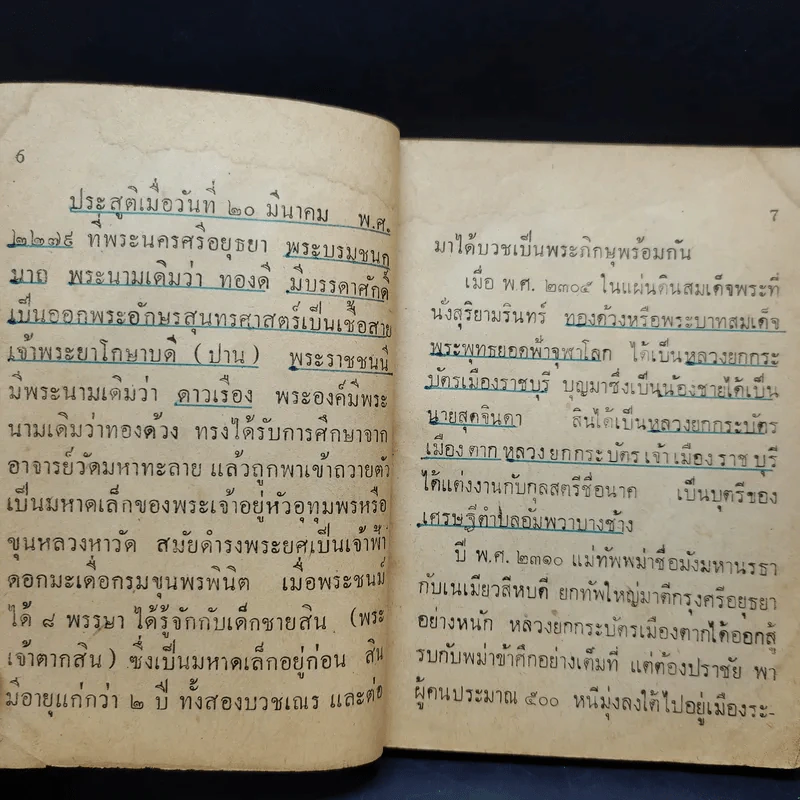 6
ประสูติเมื่อวันที่ ๒๐ มีนาคม พ.ศ.
๒๒๗๙ ที่พระนครศรีอยุธยา พระบรมชนก
นาถ พระนามเดิมว่า ทองดี มีบรรดาศักดิ์
เป็นออกพระอักษรสุนทรศาสตร์เป็นเชื้อสาย
เจ้าพระยาโกษาบดี (ปาน) พระราชชนนี
มีพระนามเดิมว่า ดาวเรือง พระองค์มีพระ
นามเดิมว่าทองด้วง ทรงได้รับการศึกษาจาก
อาจารย์วัดมหาทะลาย แล้วถูกพาเข้าถวายตัว
เป็นมหาดเล็กของพระเจ้าอยู่หัวอุทุมพรหรือ
ขุนหลวงหาวัด สมัยดำรงพระยศเป็นเจ้าฟ้า
ดอกมะเดื่อกรมขุนพรพินิต เมื่อพระชนม์
ได้ ๘ พรรษา ได้รู้จักกับเด็กชายสิน (พระ
เจ้าตากสิน) ซึ่งเป็นมหาดเล็กอยู่ก่อน สิน
มีอายุแก่กว่า ๒ ปี ทั้งสองบวชเณร และต่อ
7
มาได้บวชเป็นพระภิกษุพร้อมกัน
เมื่อ พ.ศ. ๒๓๐๕ ในแผ่นดินสมเด็จพระที่
นั่งสุริยามรินทร์ ทองด้วงหรือพระบาทสมเด็จ
พระพุทธยอดฟ้าจุฬาโลก ได้เป็นหลวงยกกระ
บัตรเมืองราชบุรี บุญมาซึ่งเป็นน้องชายได้เป็น
นายสุดจินดา สินได้เป็นหลวงยกกระบัตร
เมืองตาก หลวงยกกระบัตรเจ้าเมืองราชบุรี
ได้แต่งงานกับกุลสตรีชื่อนาค เป็นบุตรีของ
เศรษฐีตำบลอัมพวาบางช้าง
ปี พ.ศ. ๒๓๑๐ แม่ทัพพม่าชื่อมังมหานรธา
กับเนเมียวสีหบดี ยกทัพใหญ่มาตีกรุงศรีอยุธยา
อย่างหนัก หลวงยกกระบัตรเมืองตากได้ออกสู้
รบกับพม่าข้าศึกอย่างเต็มที่ แต่ต้องปราชัย พา
ผู้คนประมาณ ๕๐๐ หนีมุ่งลงใต้ไปอยู่เมืองระ-